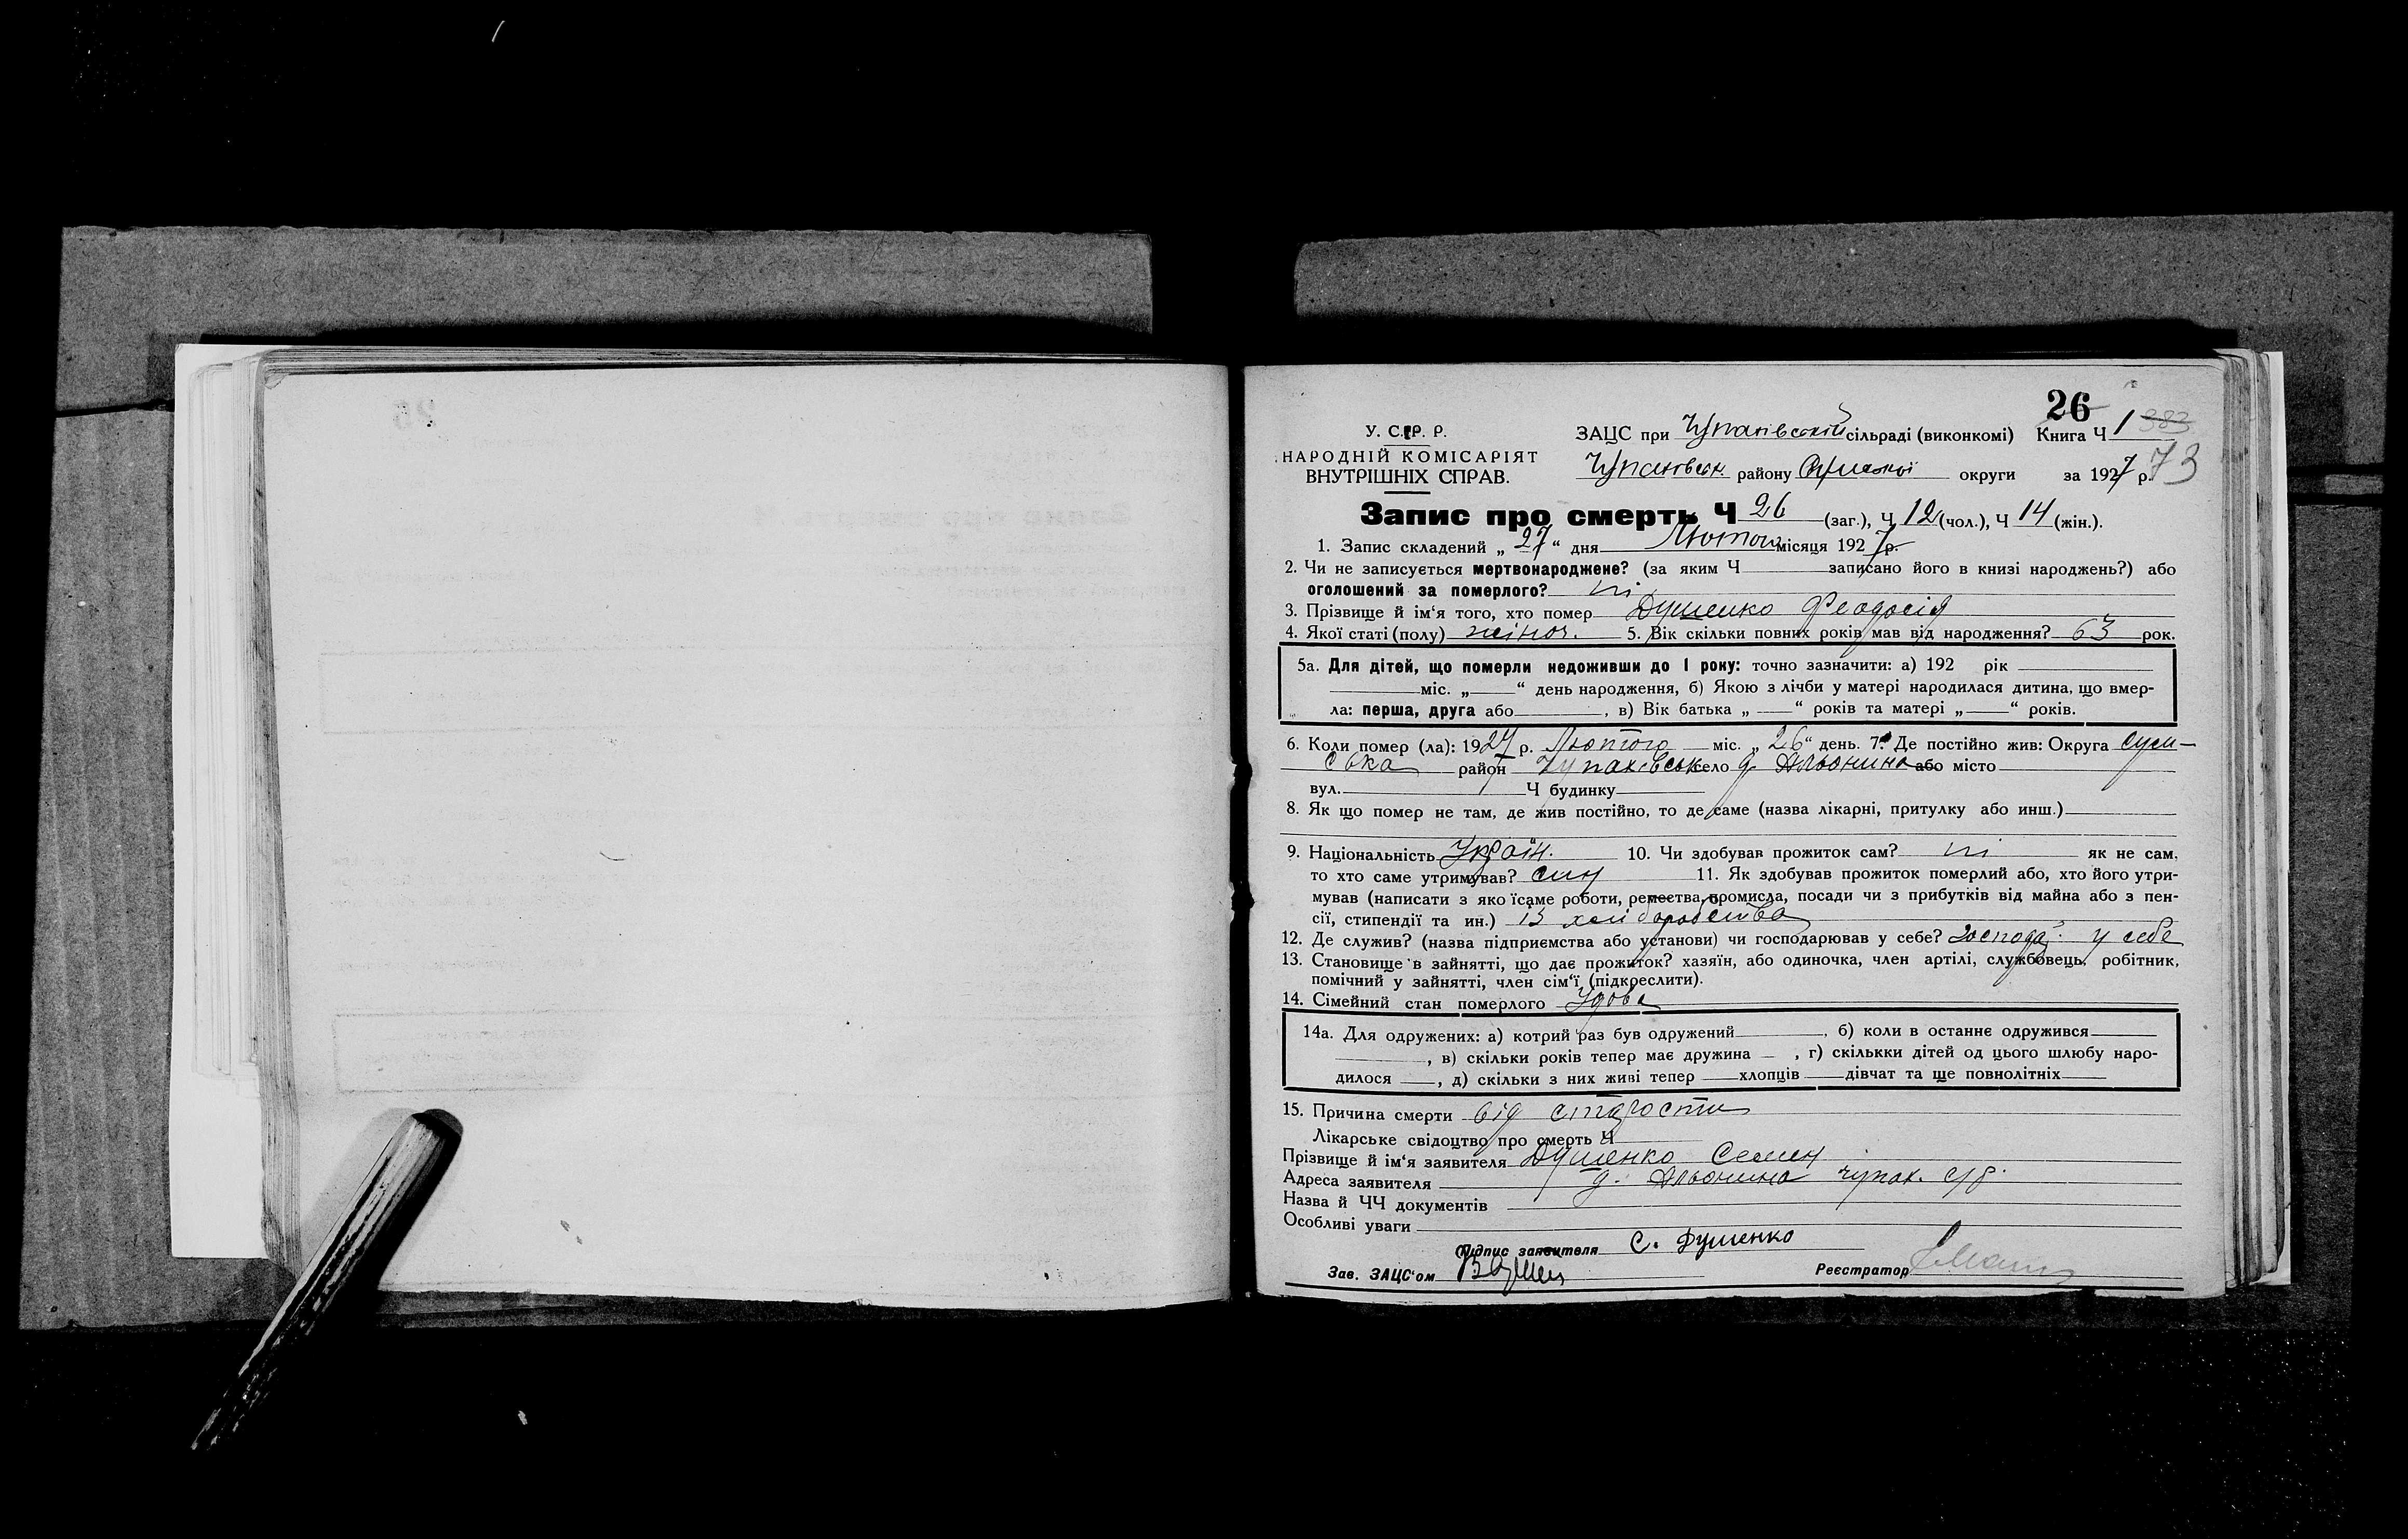 26
У. С. Р. Р. ЗАЦС при Чупахівській сільраді (виконкомі) Книга Ч 1 383
НАРОДНІЙ КОМІСАРІЯТ
ВНУТРІШНІХ СПРАВ.
Чупахівськ. району Сумської округи за 1927 р. 73
Запис про смерть Ч 26 (заг.), Ч 12 (чол.), Ч 14 (жін.).
1. Запис складений „ 27 “ дня Лютого місяця 1927 р.
2. Чи не записується мертвонароджене? (за яким Ч записано його в книзі народжень?) або
оголошений за померлого? ні
3. Прізвище й ім‘я того, хто помер Душенко Феодосія
4. Якої статі (полу) жіноч. 5. Вік скільки повних років мав від народження? 63 рок.
5а. Для дітей, що померли недоживши до 1 року: точно зазначити: а) 192 рік
міс. „ “ день народження, б) Якою з лічби у матері народилася дитина, що вмер-
ла: перша, друга або , в) Вік батька „ “ років та матері „ “ років.
6. Коли помер (ла): 1927 р. Лютого міс. „ 26 “ день. 7. Де постійно жив: Округа Сум-
ська район Чупахівськ село д. Альонино або місто
вул. Ч будинку
8. Як що помер не там, де жив постійно, то де саме (назва лікарні, притулку або инш.)
9. Національність Україн. 10. Чи здобував прожиток сам? ні як не сам,
то хто саме утримував? син 11. Як здобував прожиток померлий або, хто його утри-
мував (написати з яко їсаме роботи, ремества, промисла, посади чи з прибутків від майна або з пен-
сії, стипендії та ин.) із хліборобства
12. Де служив? (назва підприємства або установи) чи господарював у себе? господ. у себе
13. Становище в зайнятті, що дає прожиток? хазяїн, або одиночка, член артілі, службовець, робітник,
помічний у зайнятті, член сім‘ї (підкреслити).
14. Сімейний стан померлого Удова
14а. Для одружених: а) котрий раз був одружений , б) коли в останнє одружився
, в) скільки років тепер має дружина , г) скількки дітей од цього шлюбу наро-
дилося , д) скільки з них живі тепер хлопців дівчат та ще повнолітніх
15. Причина смерти від старости
Лікарське свідоцтво про смерть Ч
Прізвище й ім‘я заявителя Душенко Семен
Адреса заявителя д. Альонино чупах. с/р.
Назва й ЧЧ документів
Особливі уваги
Підпис заявителя С. Душенко
Зав. ЗАЦС‘ом Реєстратор